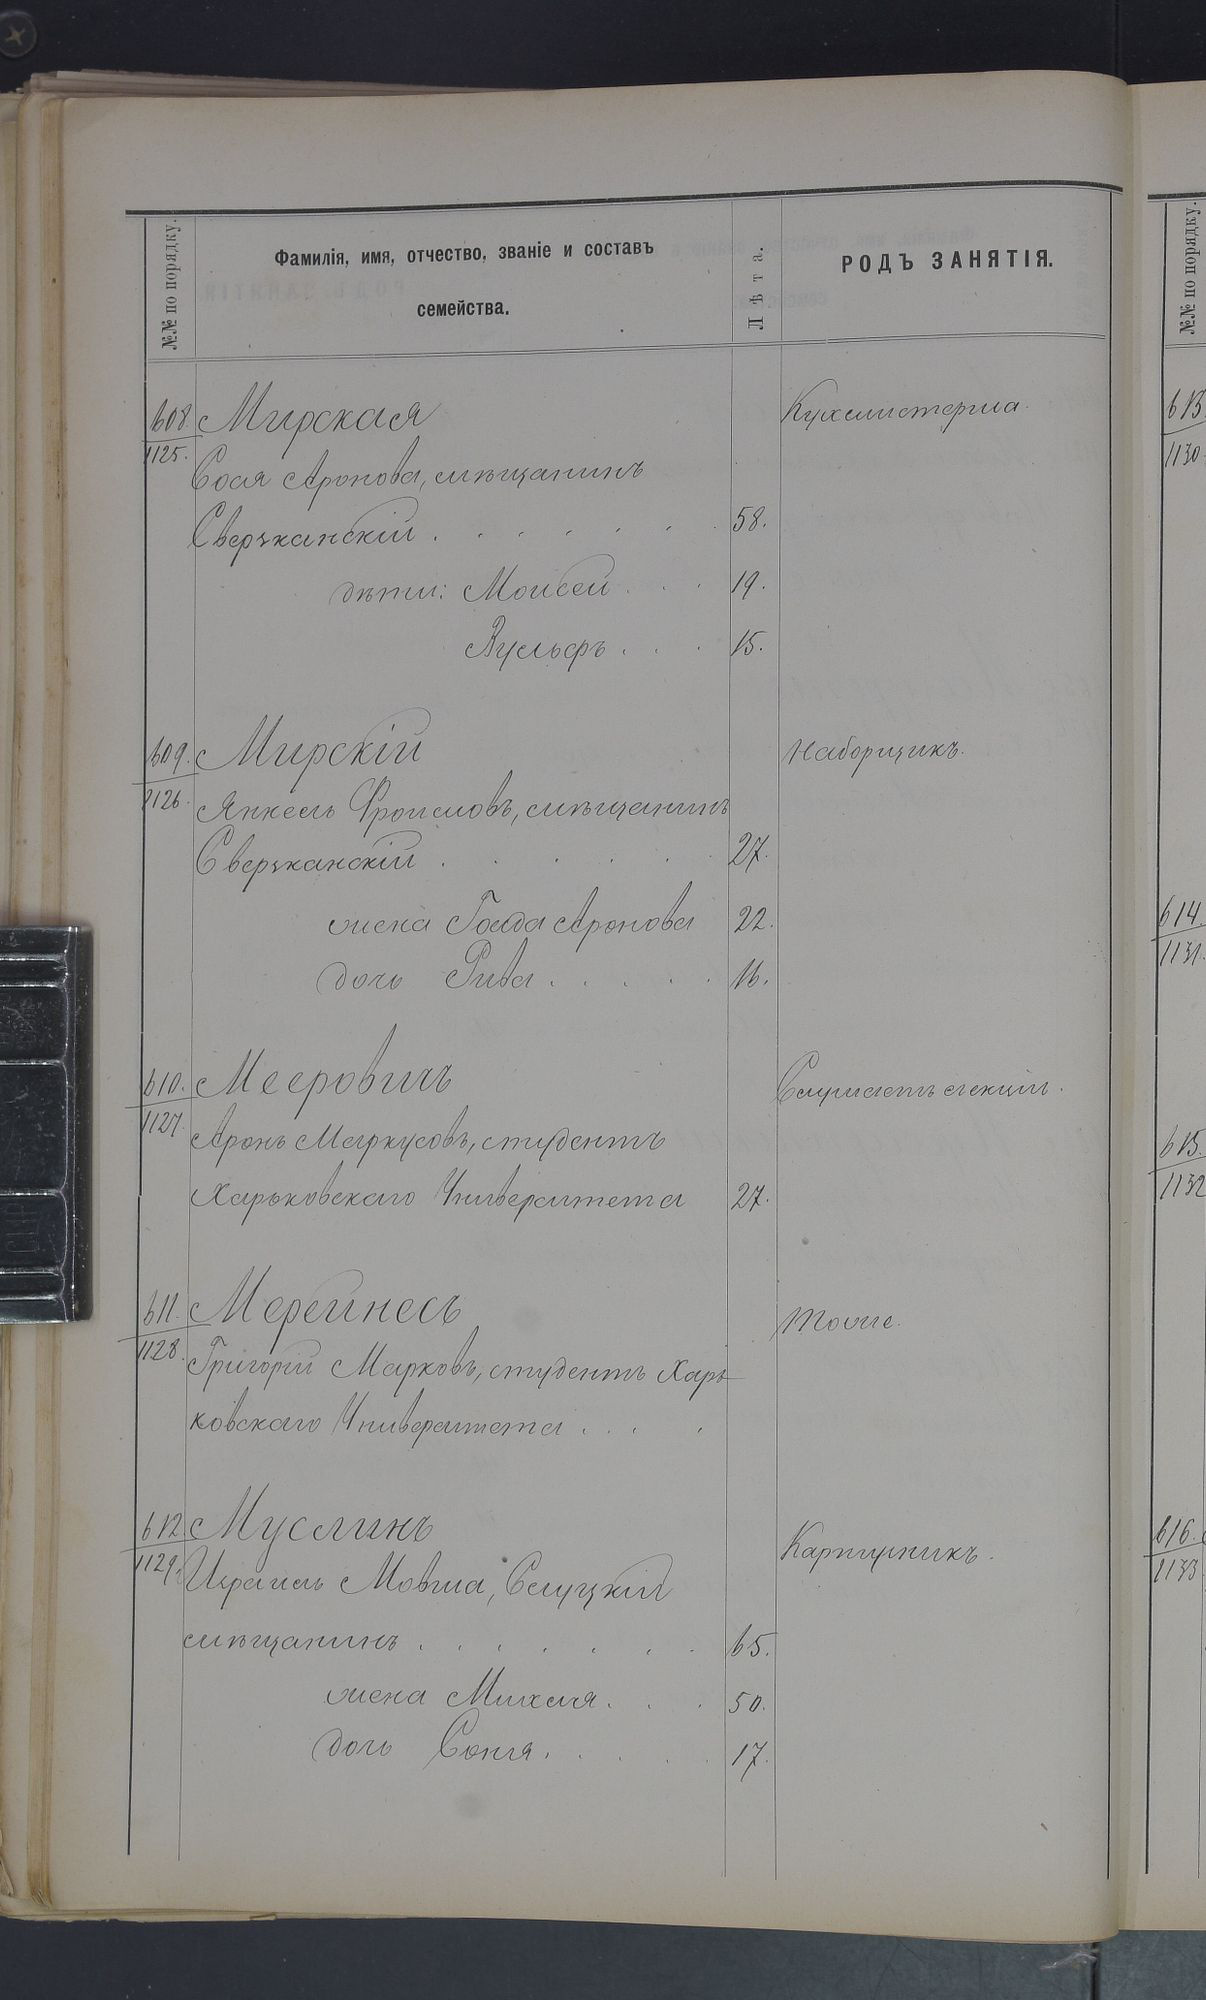 №№ по порядку.
Фамилія, имя, отчество, званіе и составъ
семейства.
Лѣта.
РОДЪ ЗАНЯТІЯ.
608. Мирская Кухмистерша.
1125.
Сося Аронова, мѣщанинъ
Свержанскій . . . . . . . 58.
дѣти: Моисей . . . 19.
Вульфъ . . . 15.
609. Мирскій Наборщикъ.
1126. Янкель Фроимовъ, мѣщанинъ
Свержанскій . . . . . . 27.
жена Голда Аронова 22.
дочь Рива . . . . . 16.
610. Мееровичъ Слушаетъ лекціи.
1127. Аронъ Маркусовъ, студентъ
Харьковскаго Университета 27.
611. Мерейнесъ Тоже.
1128. Григорій Марковъ, студентъ Харь-
ковскаго Университета . . . .
612. Муслинъ Картузникъ.
1129. Израиль Мовша, Слуцкій
мѣщанинъ . . . . . . . 65.
жена Михля . . . 50.
дочь Соня . . . . . 17.
№№ по порядку.
613.
1130.
614.
1131.
615.
1132
616.
1133